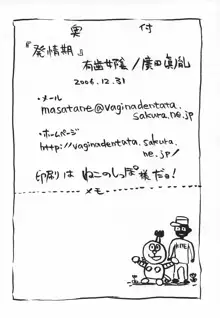 奥付
『発情期』
有歯女陰／廣田眞胤
2006.12.31
・メール
masatane@vaginadentata.
sakura.ne.jp
・ホームページ
http://vaginadentata.sakura.
ne.jp/
印刷は ねこのしっぽ様だ！
メモ